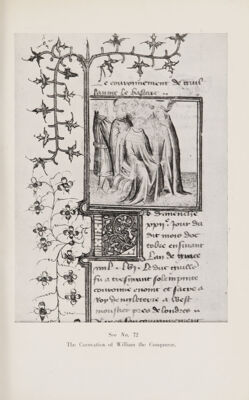 Le couronnement de Guil
laume le bastart
dimenche
xxii. jour du
dit mois doc
tobre ensuivant
Lan de grace
mil. lxvi. Le duc Guille
fu a tresgrant solempnite
couronne et sacre a
Roy de a West
moustier pres de londres
couronnement
See No. 72
The Coronation of William the Conqueror.